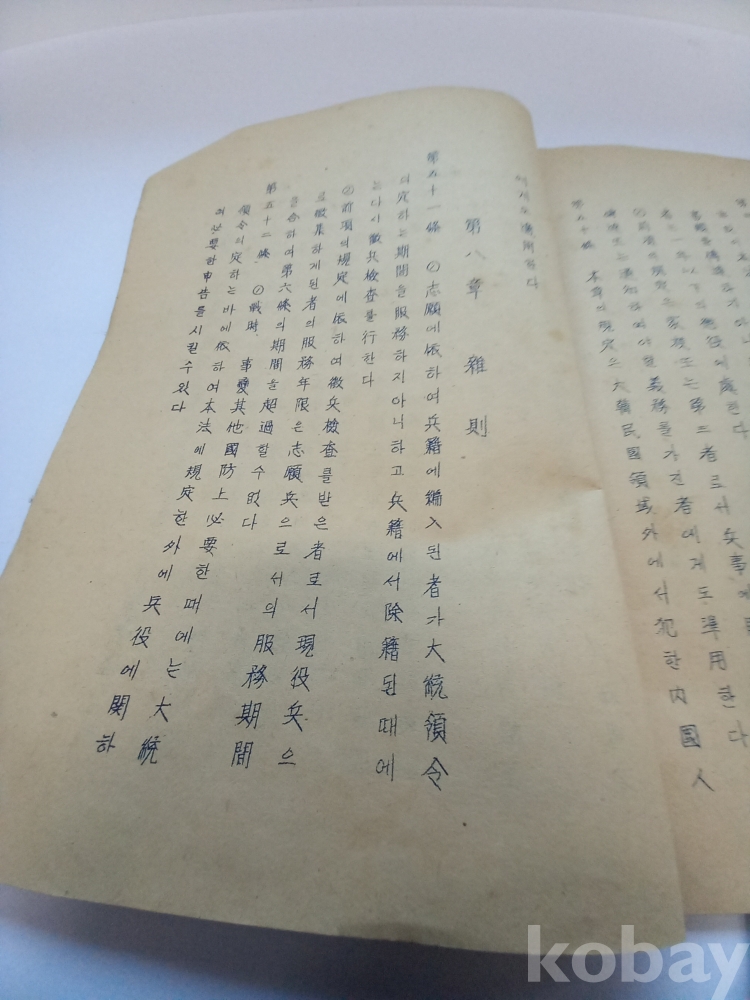 者는一年以下의懲役에處한다
②前項의規定은家族또는第三者로서兵事에関
義務를가진者에게도準用한다
第五十條 本章의規定은大韓民國領域外에서犯한內國人
에게도適用한다
第八章 雜則
第五十一條 ①志願에依하여兵籍에編入된者가大統領令
의定하는期間을服務하지아니하고兵籍에서除籍된때에
는다시徵兵檢査를行한다
②前項의規定에依하여徵兵檢査를받은者로서現役兵으
로徵集하게된者의服務年限은志願兵으로서의服務期間
을合하여第六條의期間을超過할수없다
第五十二條 ①戰時、事變其他國防上必要한때에는大統
領令의定하는바에依하여本法에規定한外에兵役에関하
여必要한申告를시킬수있다
kobay